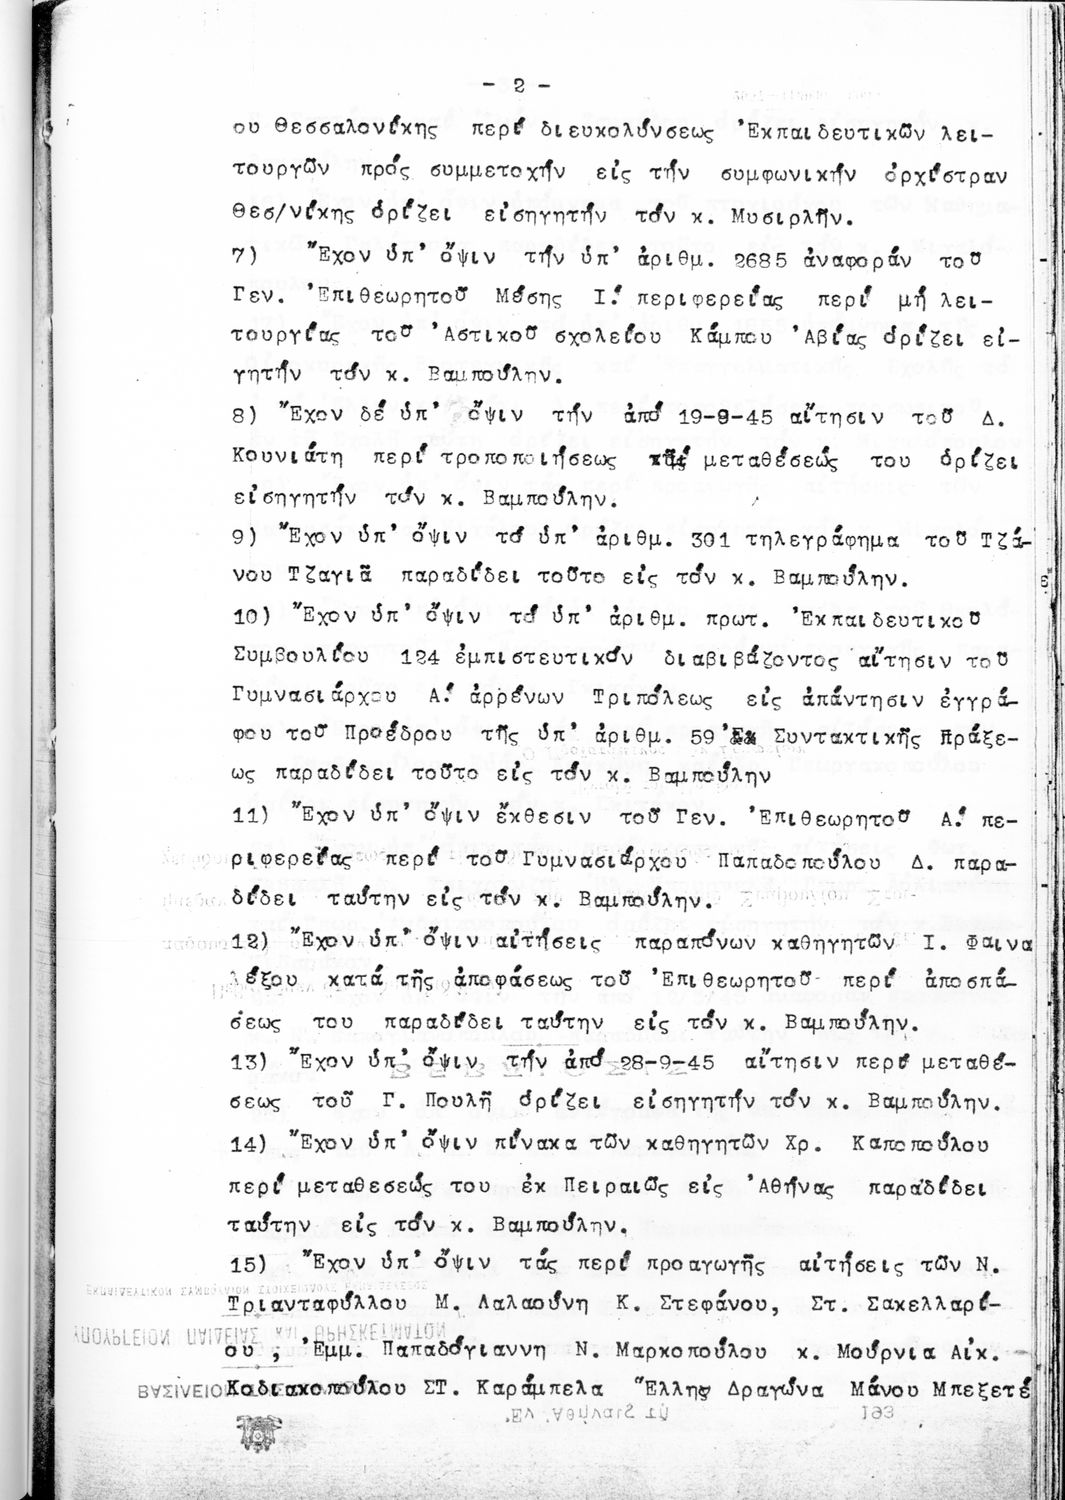 - 2 -
ου Θεσσαλονίκης περί διευκολύνσεως Ἐκπαιδευτικῶν λει-
τουργῶν πρός συμμετοχήν εἰς τήν συμφωνικήν ὀρχήστραν
Θεσ/νίκης ὁρίζει εἰσηγητήν τόν κ. Μυσιρλῆν.
7) Ἔχον ὑπ' ὄψιν τήν ὑπ' ἀριθμ. 2685 ἀναφοράν τοῦ
Γεν. Ἐπιθεωρητοῦ Μέσης Ι.' περιφερείας περί μή λει-
τουργίας τοῦ Ἀστικοῦ σχολείου Κάμπου Ἀβίας ὁρίζει εἰ-
γητήν τόν κ. Βαμπούλην.
8) Ἔχον δέ ὑπ' ὄψιν τήν ἀπό 19-9-45 αἴτησιν τοῦ Δ.
Κουνιάτη περί τροποποιήσεως τῆς μεταθέσεώς του ὁρίζει
εἰσηγητήν τόν κ. Βαμπούλην.
9) Ἔχον ὑπ' ὄψιν τό ὑπ' ἀριθμ. 301 τηλεγράφημα τοῦ Τζά-
νου Τζαγιᾶ παραδίδει τοῦτο εἰς τόν κ. Βαμπούλην.
10) Ἔχον ὑπ' ὄψιν τό ὑπ' ἀριθμ. πρωτ. Ἐκπαιδευτικοῦ
Συμβουλίου 124 ἐμπιστευτικόν διαβιβάζοντος αἴτησιν τοῦ
Γυμνασιάρχου Α.' ἀρρένων Τριπόλεως εἰς ἀπάντησιν ἐγγρά-
φου τοῦ Προέδρου τῆς ὑπ' ἀριθμ. 59 Συντακτικῆς Πράξε-
ως παραδίδει τοῦτο εἰς τόν κ. Βαμπούλην
11) Ἔχον ὑπ' ὄψιν ἔκθεσιν τοῦ Γεν. Ἐπιθεωρητοῦ Α.' πε-
ριφερείας περί τοῦ Γυμνασιάρχου Παπαδοπούλου Δ. παρα-
δίδει ταύτην εἰς τόν κ. Βαμπούλην.
12) Ἔχον ὑπ' ὄψιν αἰτήσεις παραπόνων καθηγητῶν Ι. Φαινα
λέξου κατά τῆς ἀποφάσεως τοῦ Ἐπιθεωρητοῦ περί ἀποσπά-
σεως του παραδίδει ταύτην εἰς τόν κ. Βαμπούλην.
13) Ἔχον ὑπ' ὄψιν τήν ἀπό 28-9-45 αἴτησιν περί μεταθέ-
σεως τοῦ Γ. Πουλῆ ὁρίζει εἰσηγητήν τόν κ. Βαμπούλην.
14) Ἔχον ὑπ' ὄψιν πίνακα τῶν καθηγητῶν Χρ. Καποπούλου
περί μεταθεσεώς του ἐκ Πειραιῶς εἰς Ἀθήνας παραδίδει
ταύτην εἰς τόν κ. Βαμπούλην.
15) Ἔχον ὑπ' ὄψιν τάς περί προαγωγῆς αἰτήσεις τῶν Ν.
Τριανταφύλλου Μ. Λαλαούνη Κ. Στεφάνου, Στ. Σακελλαρί-
ου , Ἐμμ. Παπαδόγιαννη Ν. Μαρκοπούλου κ. Μούρνια Αἰκ.
Κοδιακοπούλου ΣΤ. Καράμπελα Ἕλλης Δραγώνα Μάνου Μπεξετέ